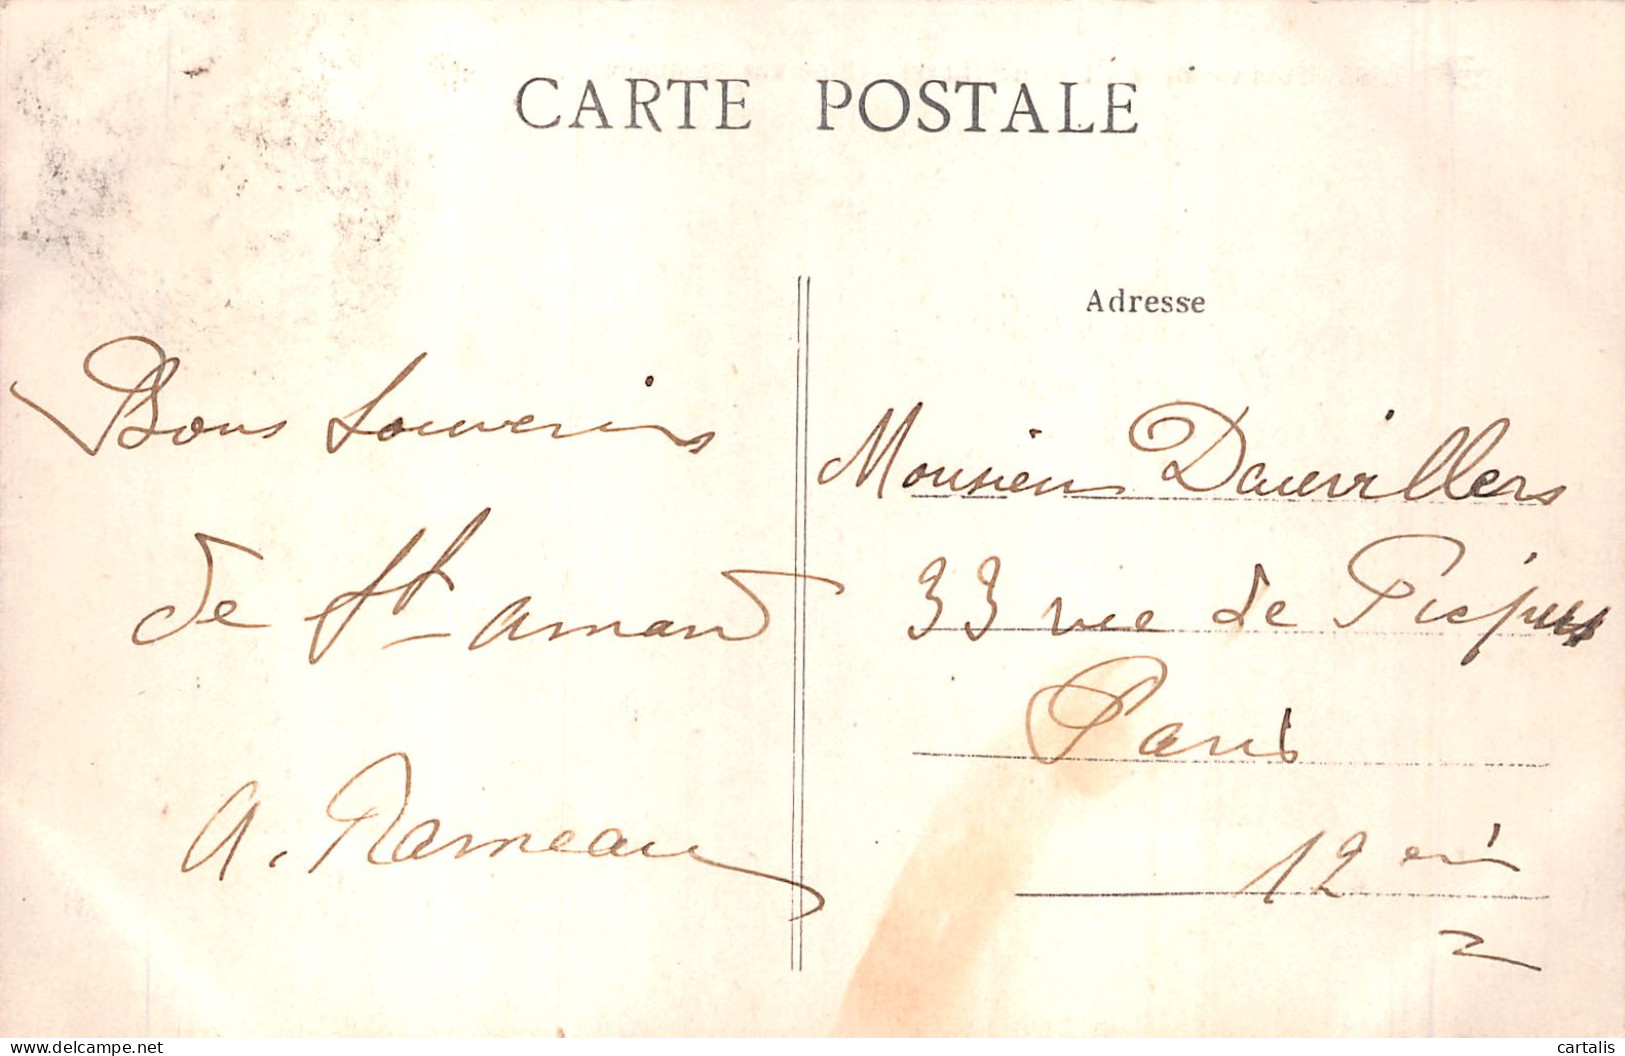 CARTE POSTALE
Bons souvenirs
de St-amand
A. Rameau
Adresse
Monsieur Dauvillers
33 rue de Picpus
Paris
12em
delcampe.net
cartalis